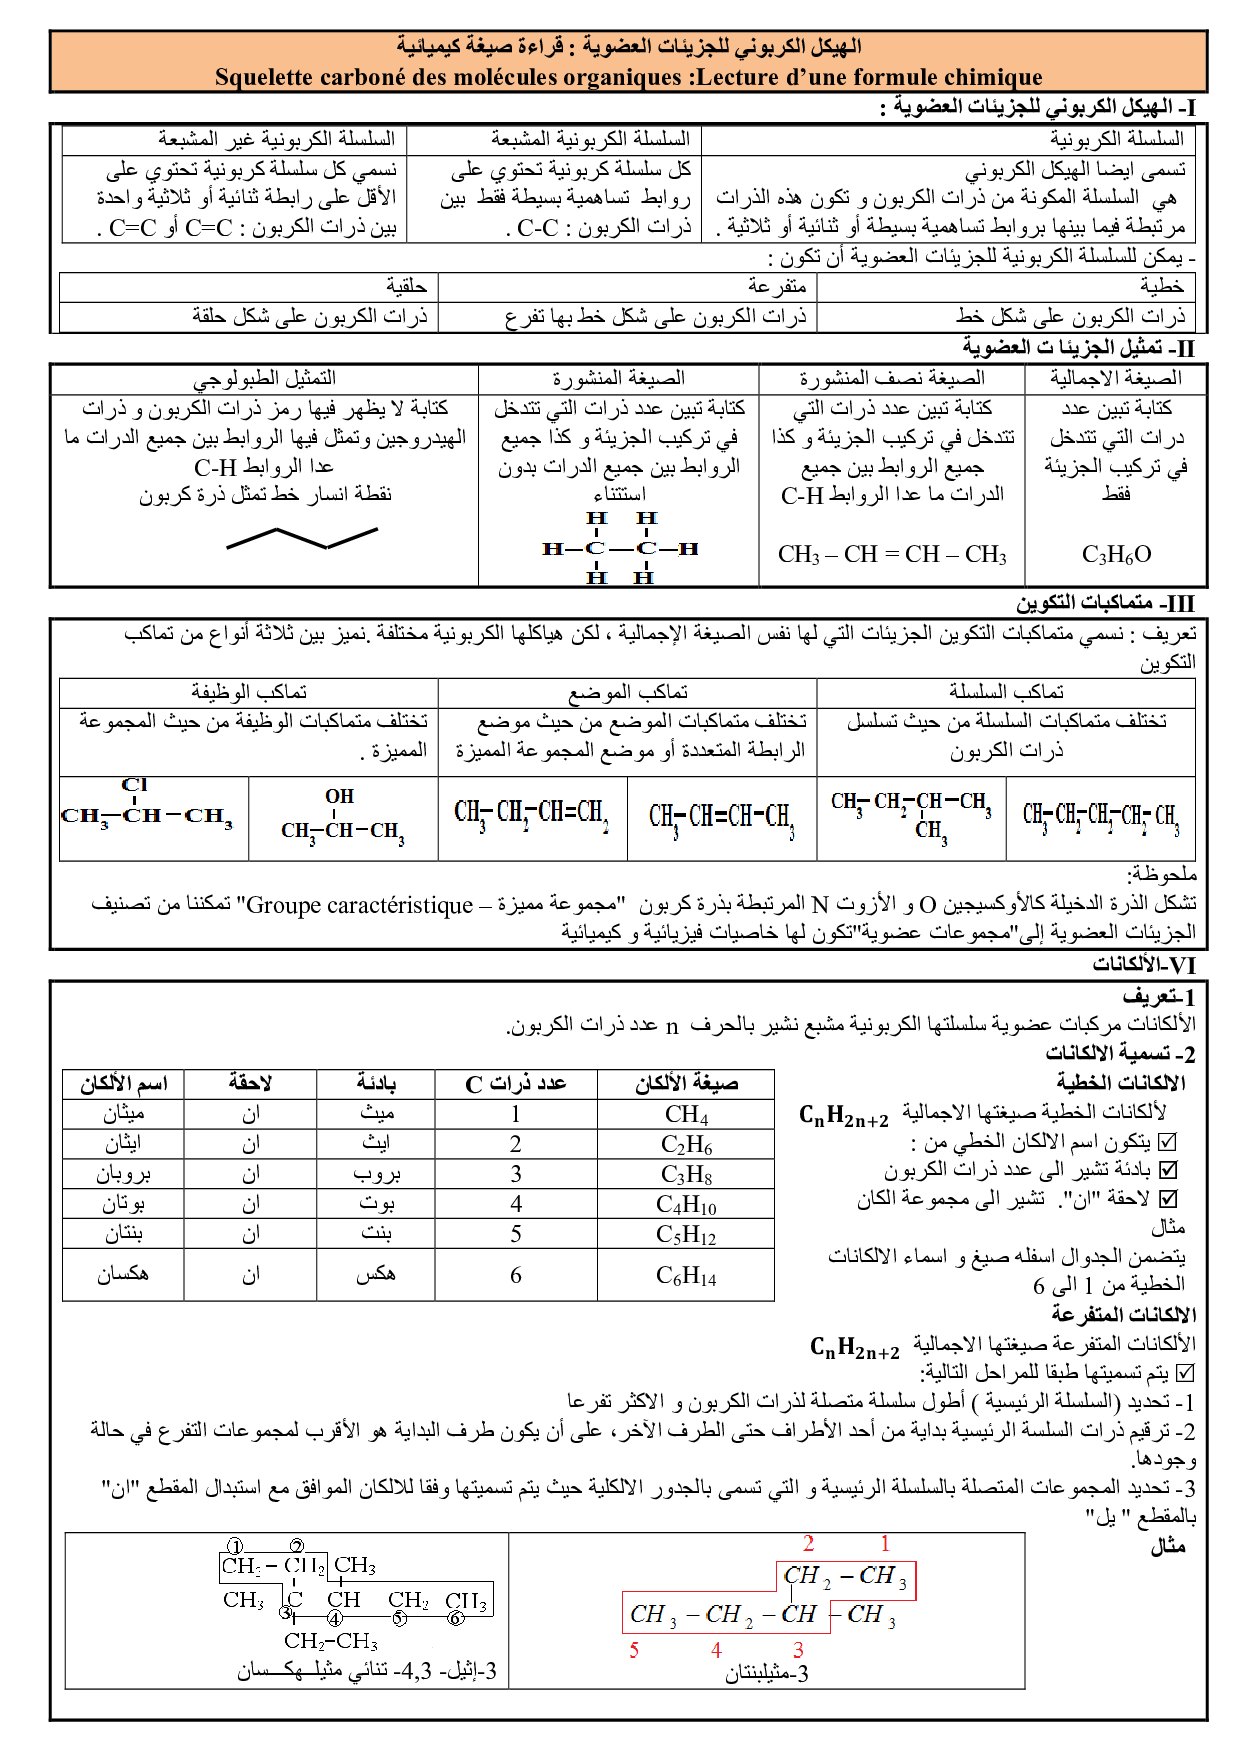 الهيكل الكربوني للجزيئات العضوية : قراءة صيغة كيميائية
Squelette carboné des molécules organiques :Lecture d’une formule chimique
I- الهيكل الكربوني للجزيئات العضوية :
السلسلة الكربونية
تسمى ايضا الهيكل الكربوني
هي السلسلة المكونة من ذرات الكربون و تكون هذه الذرات
مرتبطة فيما بينها بروابط تساهمية بسيطة أو ثنائية أو ثلاثية .
السلسلة الكربونية المشبعة
كل سلسلة كربونية تحتوي على
روابط تساهمية بسيطة فقط بين
ذرات الكربون : C-C .
السلسلة الكربونية غير المشبعة
نسمي كل سلسلة كربونية تحتوي على
الأقل على رابطة ثنائية أو ثلاثية واحدة
بين ذرات الكربون : C=C أو C=C .
- يمكن للسلسلة الكربونية للجزيئات العضوية أن تكون :
خطية
متفرعة
حلقية
ذرات الكربون على شكل خط
ذرات الكربون على شكل خط بها تفرع
ذرات الكربون على شكل حلقة
II- تمثيل الجزيئا ت العضوية
الصيغة الاجمالية
كتابة تبين عدد
درات التي تتدخل
في تركيب الجزيئة
فقط
C3H6O
الصيغة نصف المنشورة
كتابة تبين عدد ذرات التي
تتدخل في تركيب الجزيئة و كذا
جميع الروابط بين جميع
الدرات ما عدا الروابط C-H
CH3 – CH = CH – CH3
الصيغة المنشورة
كتابة تبين عدد ذرات التي تتدخل
في تركيب الجزيئة و كذا جميع
الروابط بين جميع الدرات بدون
استتناء
H H
H–C–C–H
H H
التمثيل الطبولوجي
كتابة لا يظهر فيها رمز ذرات الكربون و ذرات
الهيدروجين وتمثل فيها الروابط بين جميع الدرات ما
عدا الروابط C-H
نقطة انسار خط تمثل ذرة كربون
III- متماكبات التكوين
تعريف : نسمي متماكبات التكوين الجزيئات التي لها نفس الصيغة الإجمالية ، لكن هياكلها الكربونية مختلفة .نميز بين ثلاثة أنواع من تماكب
التكوين
تماكب السلسلة
تماكب الموضع
تماكب الوظيفة
تختلف متماكبات السلسلة من حيث تسلسل
ذرات الكربون
تختلف متماكبات الموضع من حيث موضع
الرابطة المتعددة أو موضع المجموعة المميزة
تختلف متماكبات الوظيفة من حيث المجموعة
المميزة .
CH3-CH2-CH2-CH2-CH3
CH3-CH2-CH-CH3
CH3
CH3-CH=CH-CH3
CH3-CH2-CH=CH2
OH
CH3–CH–CH3
Cl
CH3–CH–CH3
ملحوظة:
تشكل الذرة الدخيلة كالأوكسيجين O و الأزوت N المرتبطة بذرة كربون "مجموعة مميزة – Groupe caractéristique" تمكننا من تصنيف
الجزيئات العضوية إلى"مجموعات عضوية"تكون لها خاصيات فيزيائية و كيميائية
VI-الألكانات
1-تعريف
الألكانات مركبات عضوية سلسلتها الكربونية مشبع نشير بالحرف n عدد ذرات الكربون.
2- تسمية الالكانات
الالكانات الخطية
لألكانات الخطية صيغتها الاجمالية CnH2n+2
☑ يتكون اسم الالكان الخطي من :
☑ بادئة تشير الى عدد ذرات الكربون
☑ لاحقة "ان". تشير الى مجموعة الكان
مثال
يتضمن الجدوال اسفله صيغ و اسماء الالكانات
الخطية من 1 الى 6
صيغة الألكان | عدد ذرات C | بادئة | لاحقة | اسم الألكان
CH4 | 1 | ميث | ان | ميثان
C2H6 | 2 | ايث | ان | ايثان
C3H8 | 3 | بروب | ان | بروبان
C4H10 | 4 | بوت | ان | بوتان
C5H12 | 5 | بنت | ان | بنتان
C6H14 | 6 | هكس | ان | هكسان
الالكانات المتفرعة
الألكانات المتفرعة صيغتها الاجمالية CnH2n+2
☑ يتم تسميتها طبقا للمراحل التالية:
1- تحديد (السلسلة الرئيسية ) أطول سلسلة متصلة لذرات الكربون و الاكثر تفرعا
2- ترقيم ذرات السلسة الرئيسية بداية من أحد الأطراف حتى الطرف الآخر، على أن يكون طرف البداية هو الأقرب لمجموعات التفرع في حالة
وجودها.
3- تحديد المجموعات المتصلة بالسلسلة الرئيسية و التي تسمى بالجدور الالكلية حيث يتم تسميتها وفقا للالكان الموافق مع استبدال المقطع "ان"
بالمقطع " يل"
مثال
2 1
CH2 – CH3
CH3 – CH2 – CH – CH3
5 4 3
3-مثيلبنتان
① ②
CH3 – CH2 CH3
CH3 C CH CH2 CH3
③ ④ ⑤ ⑥
CH2–CH3
3-إثيل- 4,3- تنائي مثيلـهكـسان